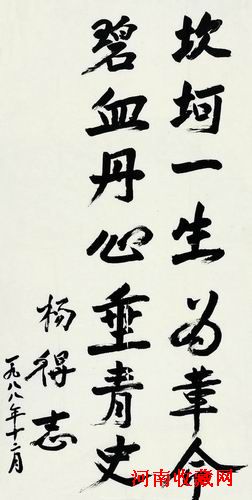 坎坷一生为革命
碧血丹心垂青史
杨得志
一九八八年十二月
河南收藏网